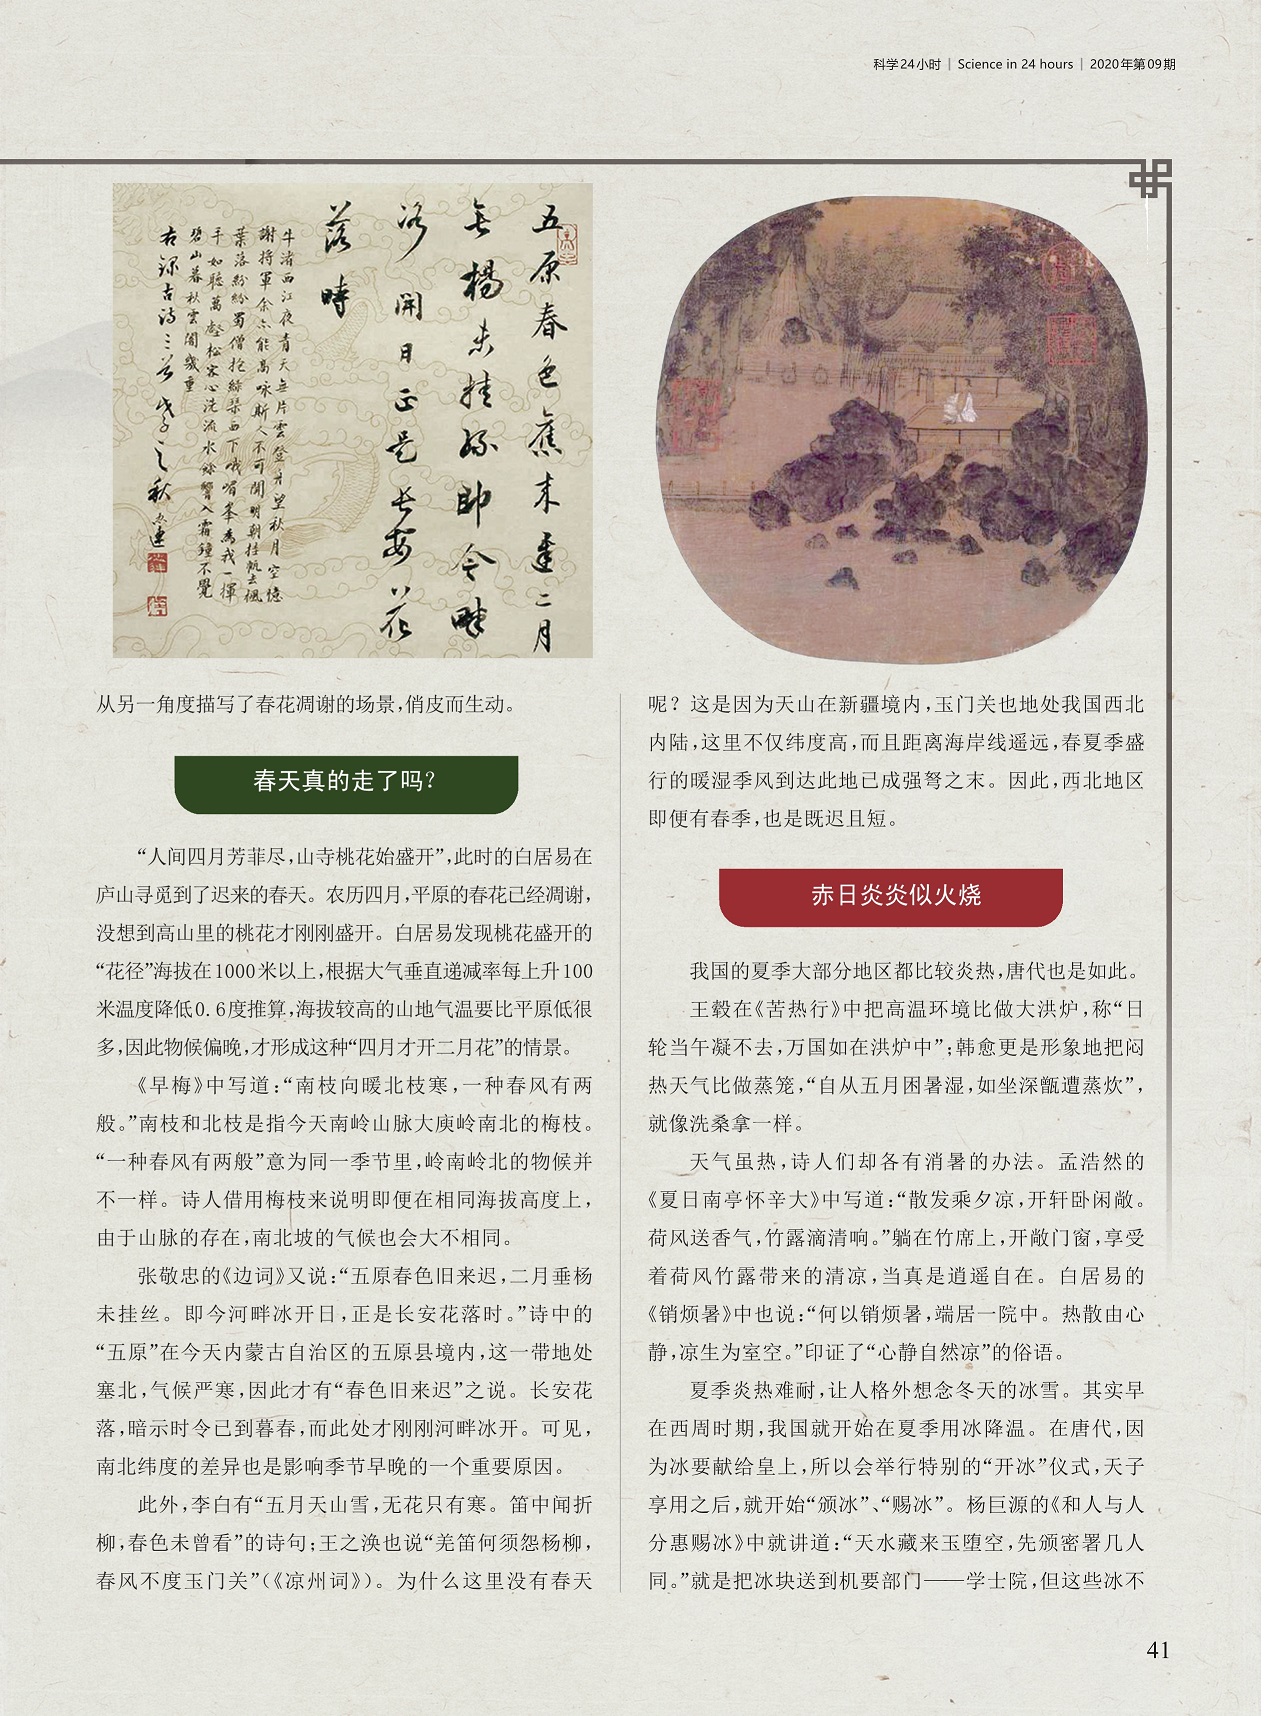 科学24小时 | Science in 24 hours | 2020年第09期
五原春色舊来遲二月
垂楊未挂絲即今畔
冰開日正是長安花
落時
牛渚西江夜青天無片雲登舟望秋月空憶
謝將軍余亦能高咏斯人不可聞明朝挂帆去楓
葉落紛紛蜀僧抱綠綺西下峨嵋峯為我一揮
手如聽萬壑松客心洗流水餘響入霜鐘不覺
碧山暮秋雲闇幾重
右錄古詩三首戊子之秋
从另一角度描写了春花凋谢的场景,俏皮而生动。
春天真的走了吗?
“人间四月芳菲尽,山寺桃花始盛开”,此时的白居易在
庐山寻觅到了迟来的春天。农历四月,平原的春花已经凋谢,
没想到高山里的桃花才刚刚盛开。白居易发现桃花盛开的
“花径”海拔在1000米以上,根据大气垂直递减率每上升100
米温度降低0.6度推算,海拔较高的山地气温要比平原低很
多,因此物候偏晚,才形成这种“四月才开二月花”的情景。
《早梅》中写道:“南枝向暖北枝寒,一种春风有两
般。”南枝和北枝是指今天南岭山脉大庾岭南北的梅枝。
“一种春风有两般”意为同一季节里,岭南岭北的物候并
不一样。诗人借用梅枝来说明即便在相同海拔高度上,
由于山脉的存在,南北坡的气候也会大不相同。
张敬忠的《边词》又说:“五原春色旧来迟,二月垂杨
未挂丝。即今河畔冰开日,正是长安花落时。”诗中的
“五原”在今天内蒙古自治区的五原县境内,这一带地处
塞北,气候严寒,因此才有“春色旧来迟”之说。长安花
落,暗示时令已到暮春,而此处才刚刚河畔冰开。可见,
南北纬度的差异也是影响季节早晚的一个重要原因。
此外,李白有“五月天山雪,无花只有寒。笛中闻折
柳,春色未曾看”的诗句;王之涣也说“羌笛何须怨杨柳,
春风不度玉门关”(《凉州词》)。为什么这里没有春天
呢?这是因为天山在新疆境内,玉门关也地处我国西北
内陆,这里不仅纬度高,而且距离海岸线遥远,春夏季盛
行的暖湿季风到达此地已成强弩之末。因此,西北地区
即便有春季,也是既迟且短。
赤日炎炎似火烧
我国的夏季大部分地区都比较炎热,唐代也是如此。
王毂在《苦热行》中把高温环境比做大洪炉,称“日
轮当午凝不去,万国如在洪炉中”;韩愈更是形象地把闷
热天气比做蒸笼,“自从五月困暑湿,如坐深甑遭蒸炊”,
就像洗桑拿一样。
天气虽热,诗人们却各有消暑的办法。孟浩然的
《夏日南亭怀辛大》中写道:“散发乘夕凉,开轩卧闲敞。
荷风送香气,竹露滴清响。”躺在竹席上,开敞门窗,享受
着荷风竹露带来的清凉,当真是逍遥自在。白居易的
《销烦暑》中也说:“何以销烦暑,端居一院中。热散由心
静,凉生为室空。”印证了“心静自然凉”的俗语。
夏季炎热难耐,让人格外想念冬天的冰雪。其实早
在西周时期,我国就开始在夏季用冰降温。在唐代,因
为冰要献给皇上,所以会举行特别的“开冰”仪式,天子
享用之后,就开始“颁冰”、“赐冰”。杨巨源的《和人与人
分惠赐冰》中就讲道:“天水藏来玉堕空,先颁密署几人
同。”就是把冰块送到机要部门——学士院,但这些冰不
41